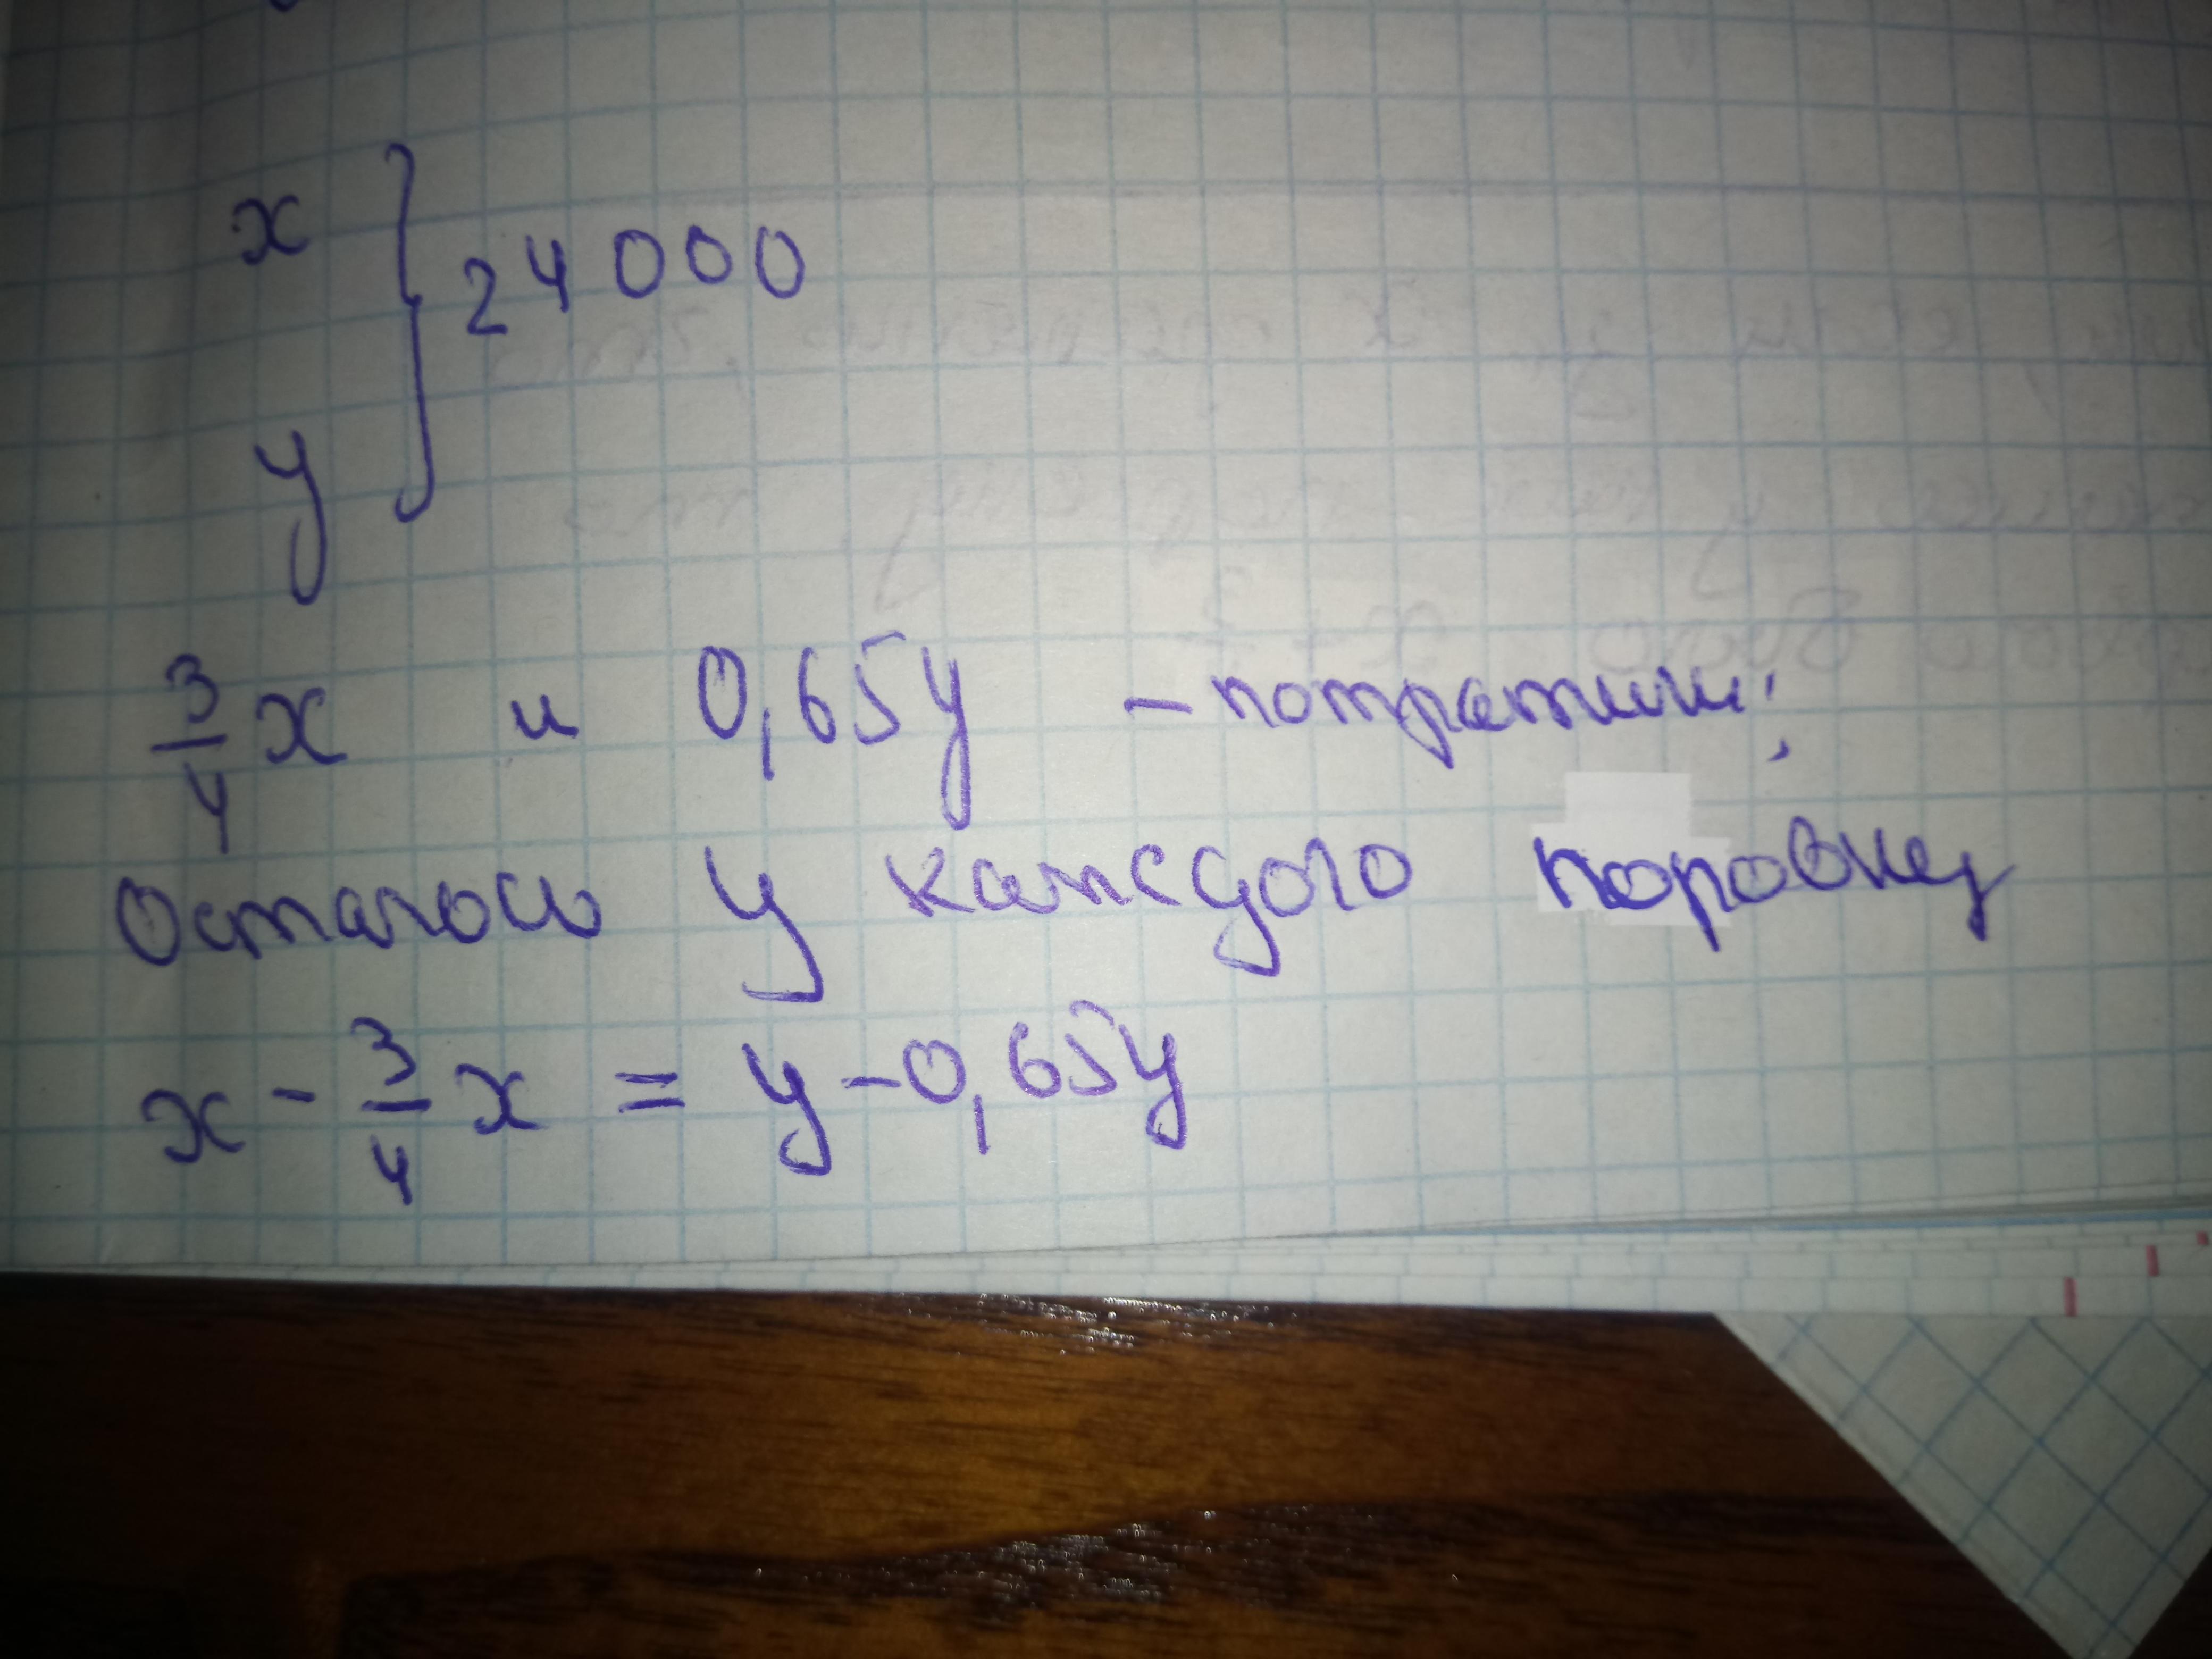 x
24000
y
3/4 x и 0,65y - потратили;
Осталось у каждого поровну
x - 3/4 x = y - 0,65y